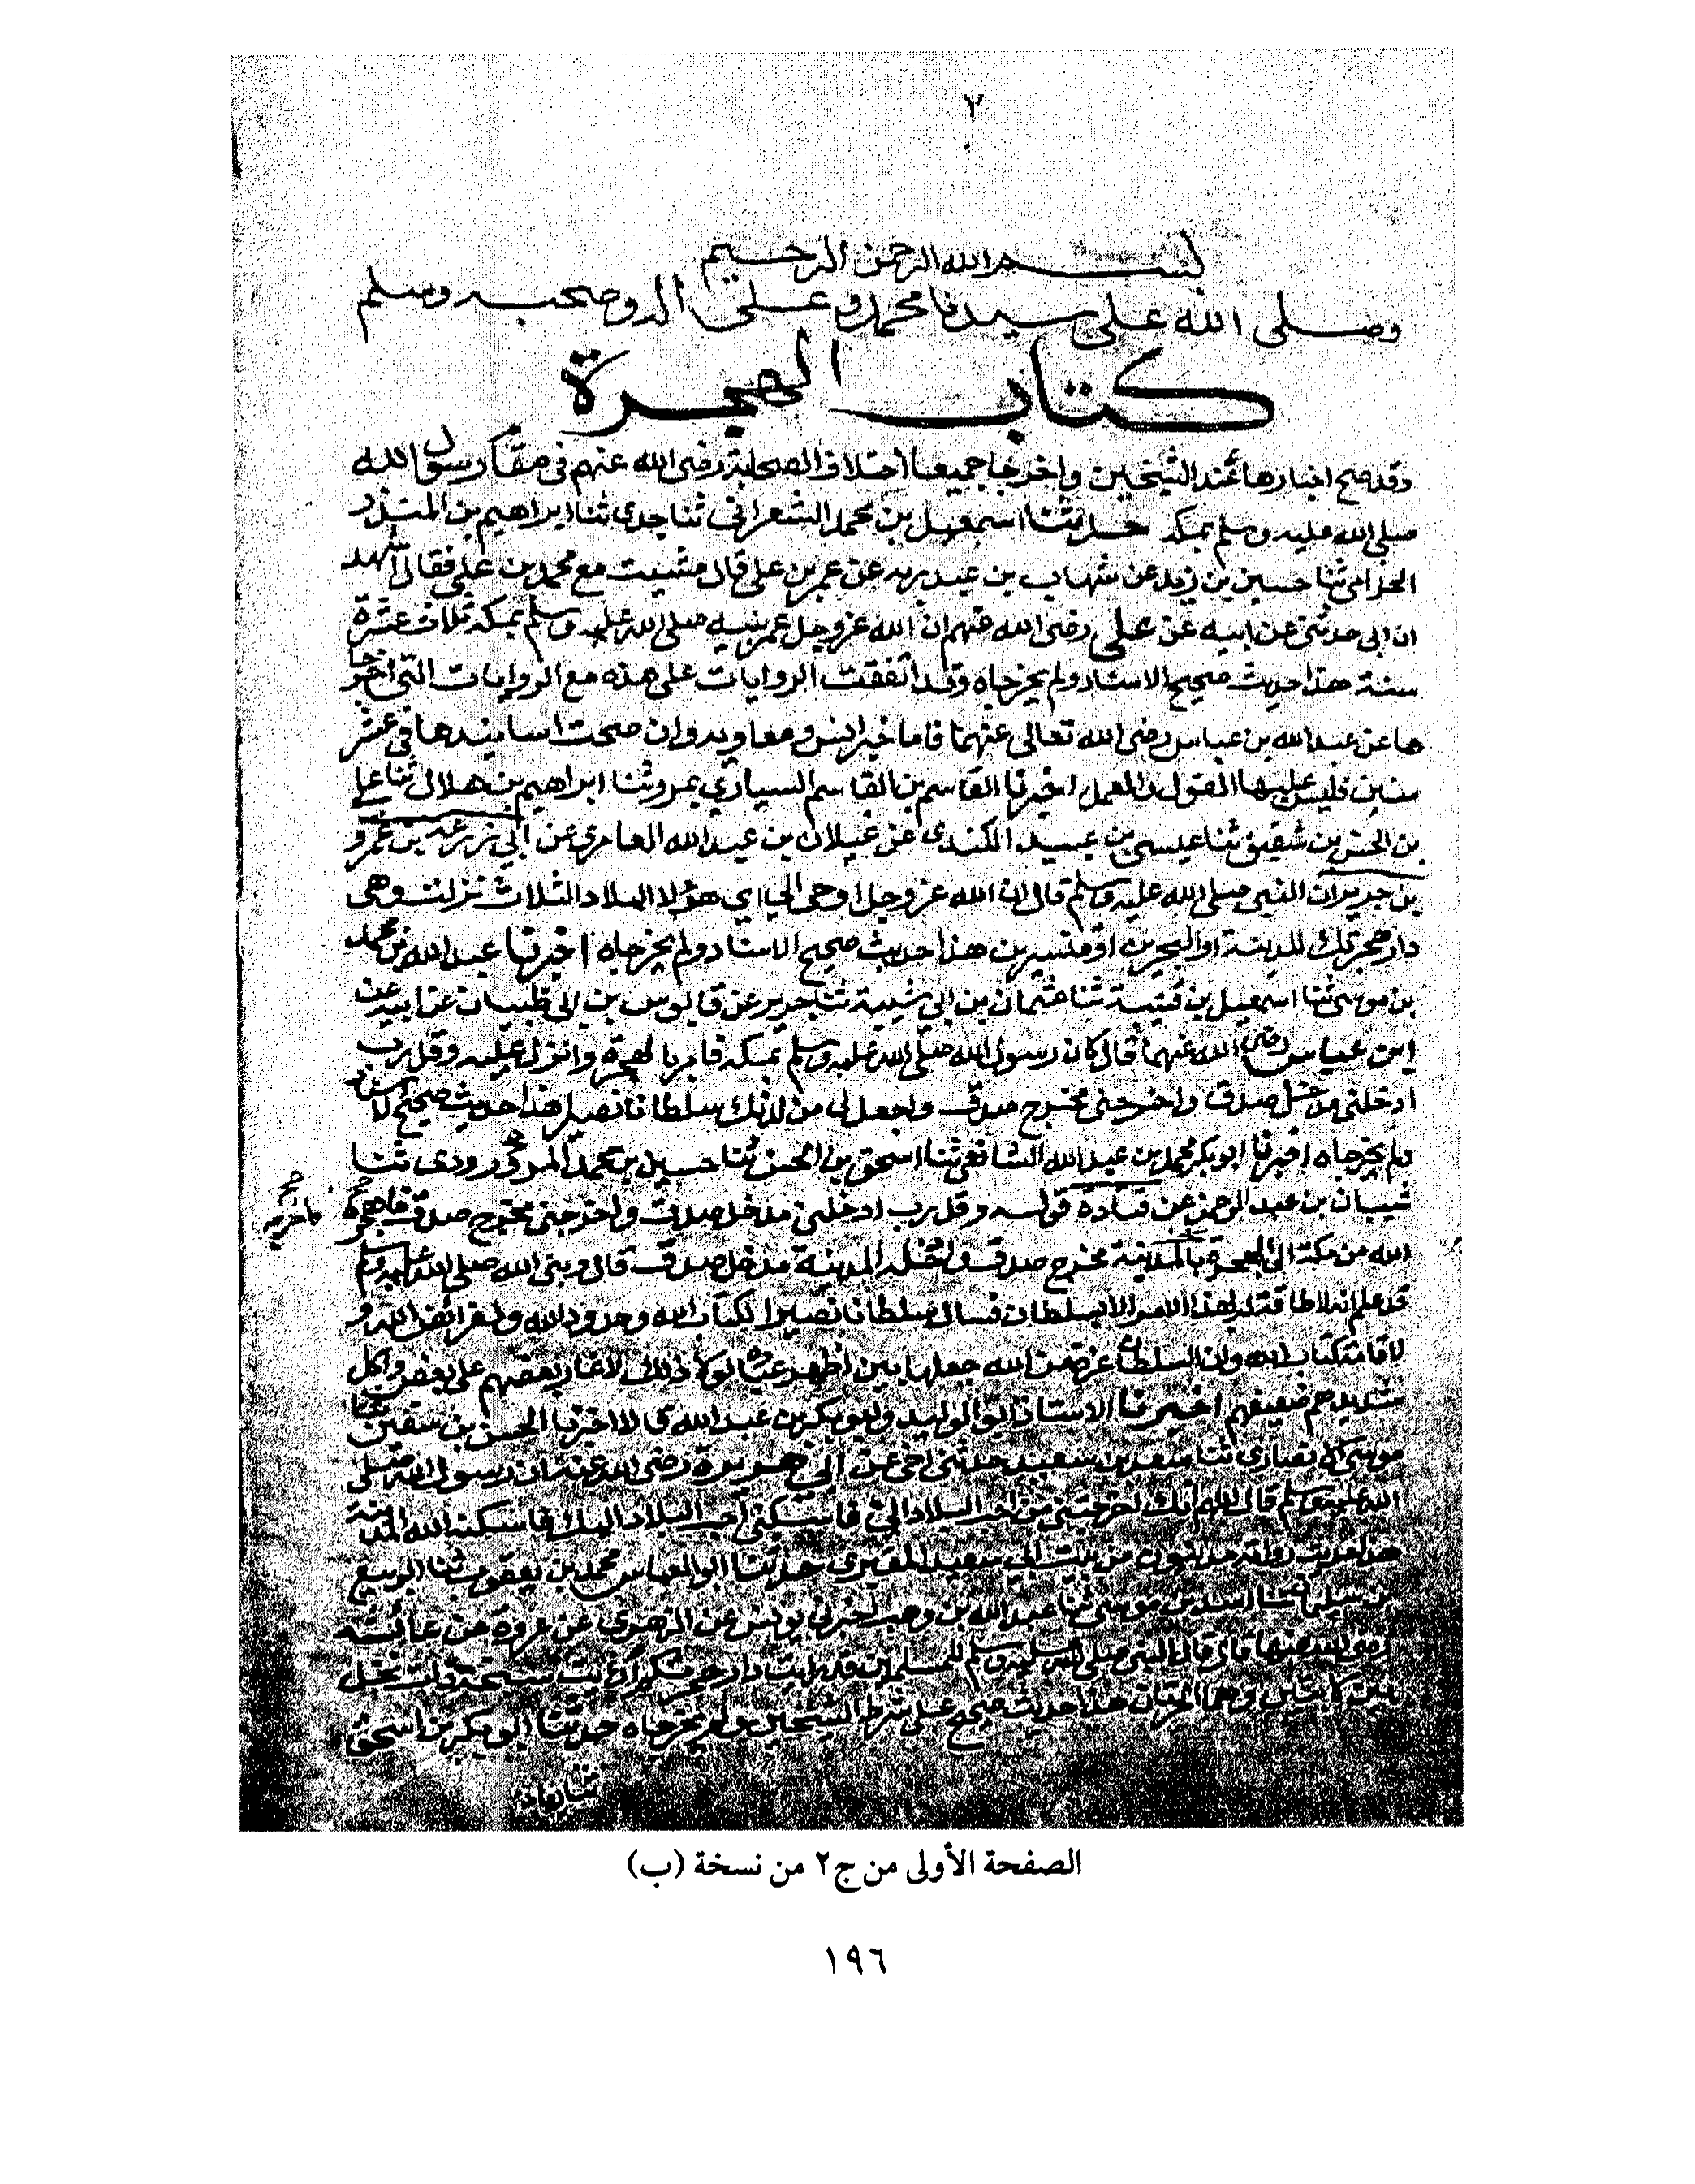 ٢
بسم الله الرحمن الرحيم
وصلى الله على سيدنا محمد وعلى اله وصحبه وسلم
كتاب الهجرة
وقد صح اخبارها عند الشيخين واخرجا جميعا اختلاف الصحابة رضى الله عنهم فى مقام رسول الله
صلى الله عليه وسلم بمكة حدثنا اسمعيل بن محمد الشعرانى ثنا جدى ثنا ابراهيم بن المنذر
الحزامى ثنا حسين بن زيد عن شهاب بن عبد ربه عن عمر بن على قال مشيت مع محمد بن على فقال اشهد
ان ابى حدثنى عن ابيه عن على رضى الله عنهم ان الله عز وجل عمر نبيه صلى الله عليه وسلم بمكة ثلاث عشرة
سنة هذا حديث صحيح الاسناد ولم يخرجاه وقد اتفقت الروايات على هذه مع الروايات التى اخرجا
ها عن عبد الله بن عباس رضى الله تعالى عنهما فاما خبر انس ومعاويه وان صحت اسانيدها فى عشر
سنين فليس عليها القول والعمل اخبرنا القاسم بن القاسم السيارى بمرو ثنا ابراهيم بن هلال ثنا على
بن الحسن بن شقيق ثنا عيسى بن عبيد الكندى عن غيلان بن عبد الله العامرى عن ابى زرعة بن عمرو
بن جرير ان النبى صلى الله عليه وسلم قال ان الله عز وجل اوحى الى اى هؤلا البلاد الثلاث نزلت وهى
دار هجرتك المدينة او البحرين او قنسرين هذا حديث صحيح الاسناد ولم يخرجاه اخبرنا عبد الله بن محمد
بن موسى ثنا اسمعيل بن قتيبة ثنا عثمان بن ابى شيبة ثنا جرير عن قابوس بن ابى ظبيان عن ابيه عن
ابن عباس رضى الله عنهما قال كان رسول الله صلى الله عليه وسلم بمكة فامر بالهجرة وانزل عليه وقل رب
ادخلنى مدخل صدق واخرجنى مخرج صدق واجعل لى من لدنك سلطانا نصيرا هذا حديث صحيح الاسناد
ولم يخرجاه اخبرنا ابو بكر محمد بن عبد الله الشافعى ثنا اسحق بن الحسن ثنا حسين بن محمد المروروذى ثنا
شيبان بن عبد الرحمن عن قتادة قوله وقل رب ادخلنى مدخل صدق واخرجنى مخرج صدق
الله من مكة الى الهجرة بالمدينة مخرج صدق وادخله المدينة مدخل صدق قال ونبى الله صلى الله عليه وسلم
قد علم انه لا طاقة له بهذا الامر الا بسلطان فسال سلطانا نصيرا لكتاب الله وحدود الله ولفرائض الله و
لاقامة كتاب الله وان السلطان عزة من الله جعلها بين اظهر عباده لولا ذلك لاغار بعضهم على بعض واكل
شديدهم ضعيفهم اخبرنا الاستاذ ابو الوليد وابو بكر بن عبد الله قالا اخبرنا الحسن بن سفين ثنا
موسى الانصارى ثنا سعد بن سعيد حدثنى اخى عن ابى هريرة رضى الله عنه ان رسول الله صلى
الله عليه وسلم قال اللهم انك اخرجتنى من احب البلاد الى فاسكنى احب البلاد اليك فاسكنه الله المدينة
هذا حديث رواته مدنيون من بيت ابى سعيد المقبرى حدثنا ابو العباس محمد بن يعقوب ثنا الربيع
بن سليمان ثنا اسد بن موسى ثنا عبد الله بن وهب اخبرنى يونس عن الزهرى عن عروة عن عائشة
رضى الله عنها قالت قال النبى صلى الله عليه وسلم للمسلمين قد رايت دار هجرتكم اريت سبخة ذات نخل
بين لابتين وهما الحرتان هذا حديث صحيح على شرط الشيخين ولم يخرجاه حدثنا ابو بكر بن اسحق
الصفحة الأولى من ج٢ من نسخة (ب)
١٩٦